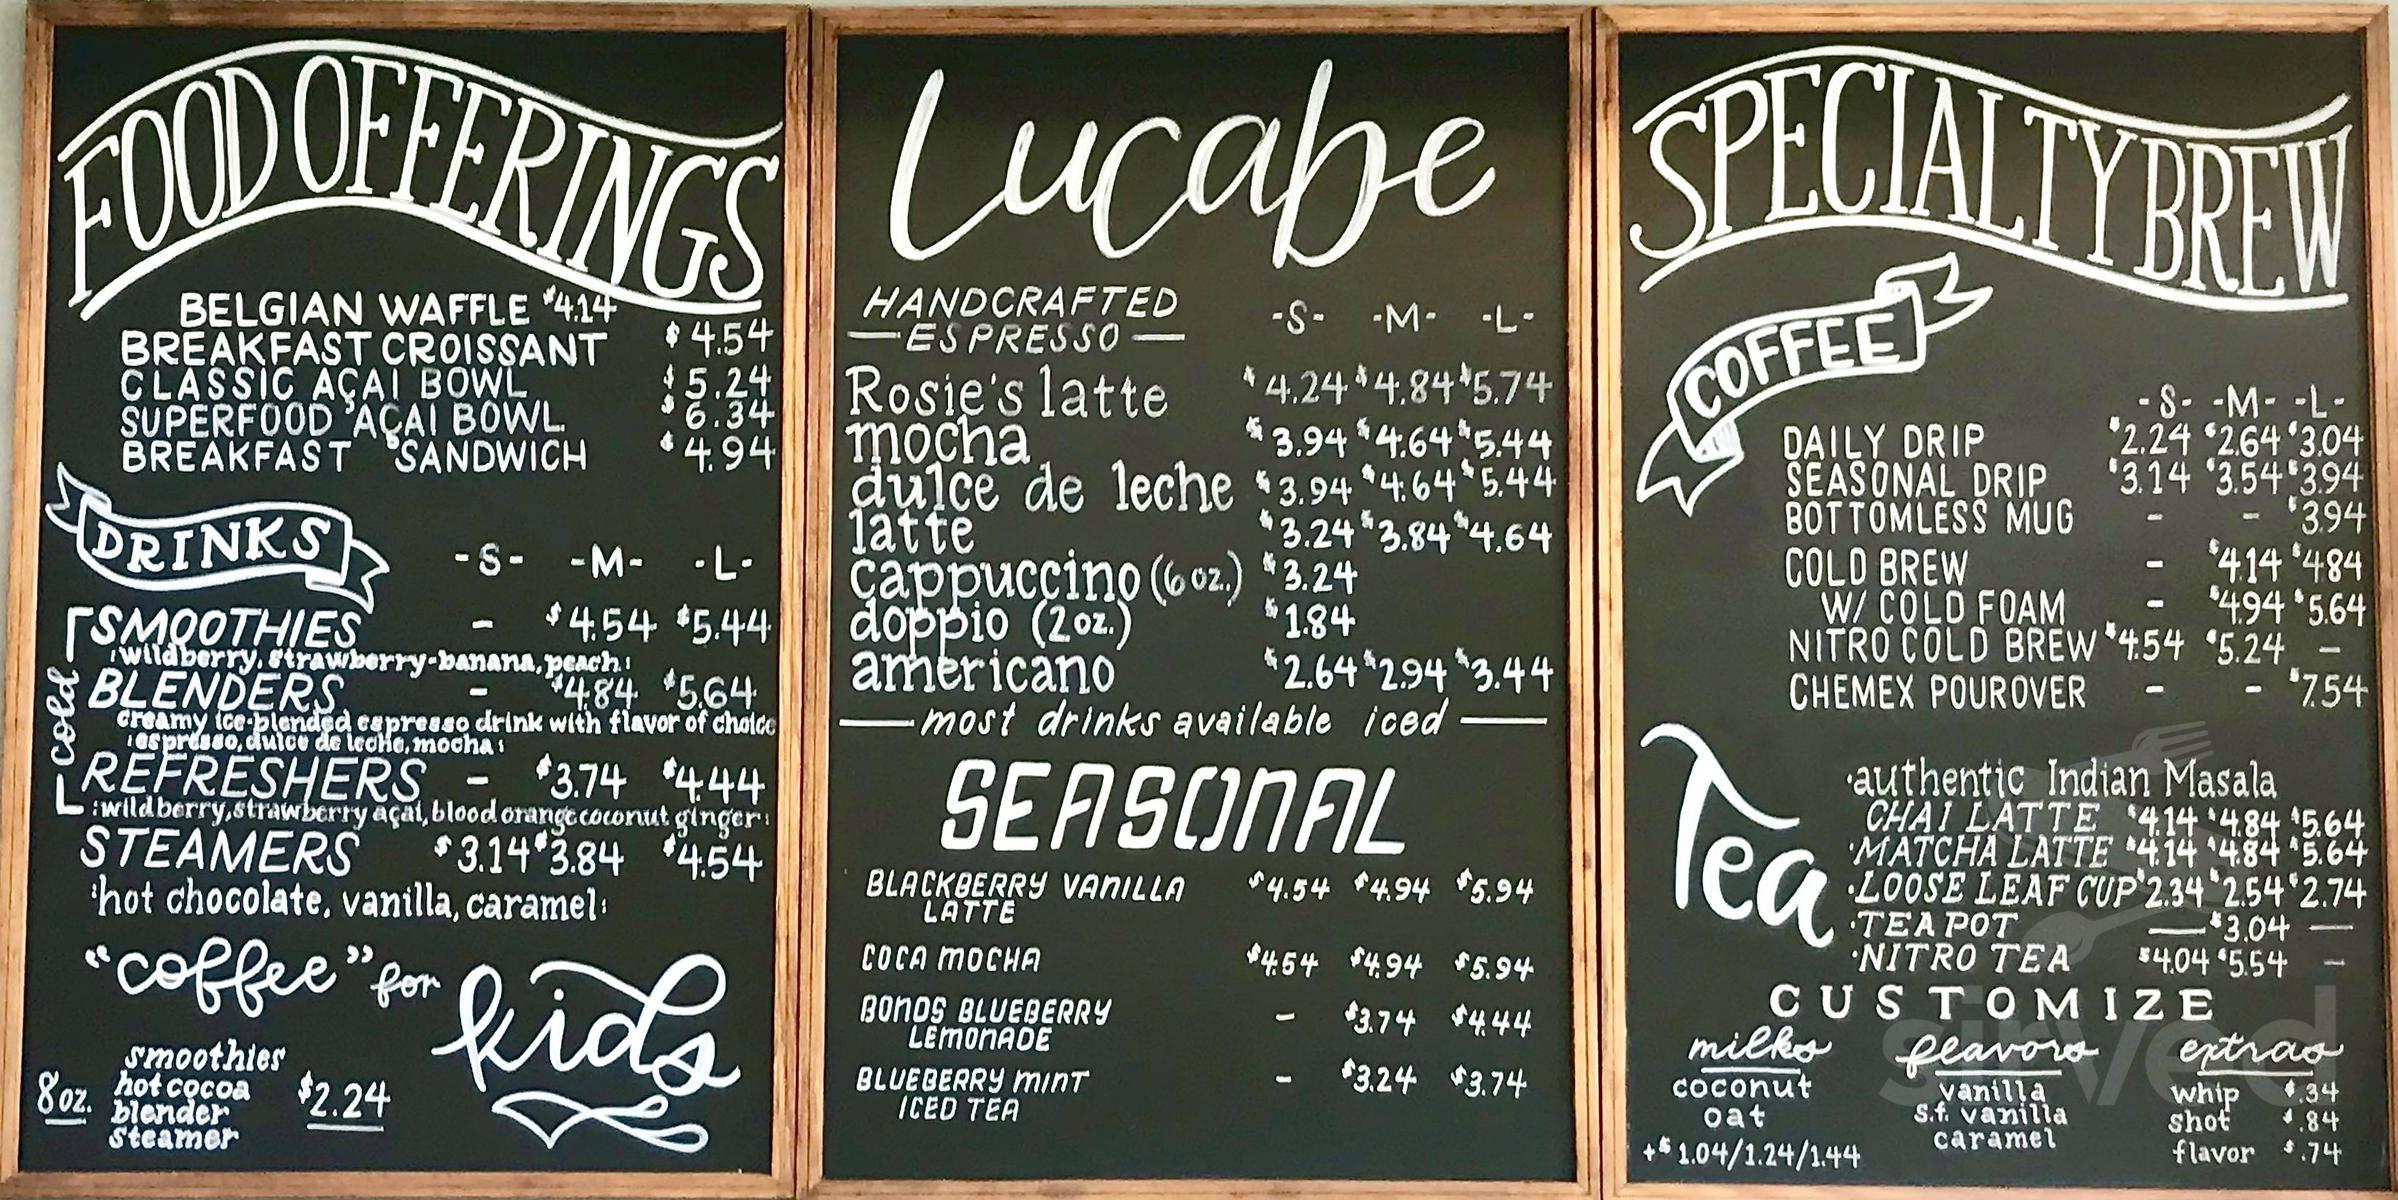 FOOD OFFERINGS
BELGIAN WAFFLE $4.14
BREAKFAST CROISSANT $4.54
CLASSIC AÇAI BOWL $5.24
SUPERFOOD AÇAI BOWL $6.34
BREAKFAST SANDWICH $4.94
DRINKS -S- -M- -L-
cold
SMOOTHIES - $4.54 $5.44
:wildberry, strawberry-banana, peach:
BLENDERS - $4.84 $5.64
creamy ice-blended espresso drink with flavor of choice
:espresso, dulce de leche, mocha:
REFRESHERS - $3.74 $4.44
:wildberry, strawberry açai, blood orange coconut ginger:
STEAMERS $3.14 $3.84 $4.54
:hot chocolate, vanilla, caramel:
"coffee" for kids
8oz.
smoothies
hot cocoa $2.24
blender
steamer
Lucabe
HANDCRAFTED
ESPRESSO -S- -M- -L-
Rosie's latte $4.24 $4.84 $5.74
mocha $3.94 $4.64 $5.44
dulce de leche $3.94 $4.64 $5.44
latte $3.24 $3.84 $4.64
cappuccino (6oz.) $3.24
doppio (2oz.) $1.84
americano $2.64 $2.94 $3.44
most drinks available iced
SEASONAL
BLACKBERRY VANILLA $4.54 $4.94 $5.94
LATTE
COCA MOCHA $4.54 $4.94 $5.94
BONDS BLUEBERRY - $3.74 $4.44
LEMONADE
BLUEBERRY MINT - $3.24 $3.74
ICED TEA
SPECIALTY BREW
COFFEE
-S- -M- -L-
DAILY DRIP $2.24 $2.64 $3.04
SEASONAL DRIP $3.14 $3.54 $3.94
BOTTOMLESS MUG - - $3.94
COLD BREW - $4.14 $4.84
W/ COLD FOAM - $4.94 $5.64
NITRO COLD BREW $4.54 $5.24 -
CHEMEX POUROVER - - $7.54
Tea
·authentic Indian Masala
CHAI LATTE $4.14 $4.84 $5.64
·MATCHA LATTE $4.14 $4.84 $5.64
·LOOSE LEAF CUP $2.34 $2.54 $2.74
·TEA POT — $3.04 —
·NITRO TEA $4.04 $5.54 -
CUSTOMIZE
milks
coconut
oat
+$1.04/1.24/1.44
flavors
vanilla
s.f. vanilla
caramel
extras
whip $.34
shot $.84
flavor $.74
sirved